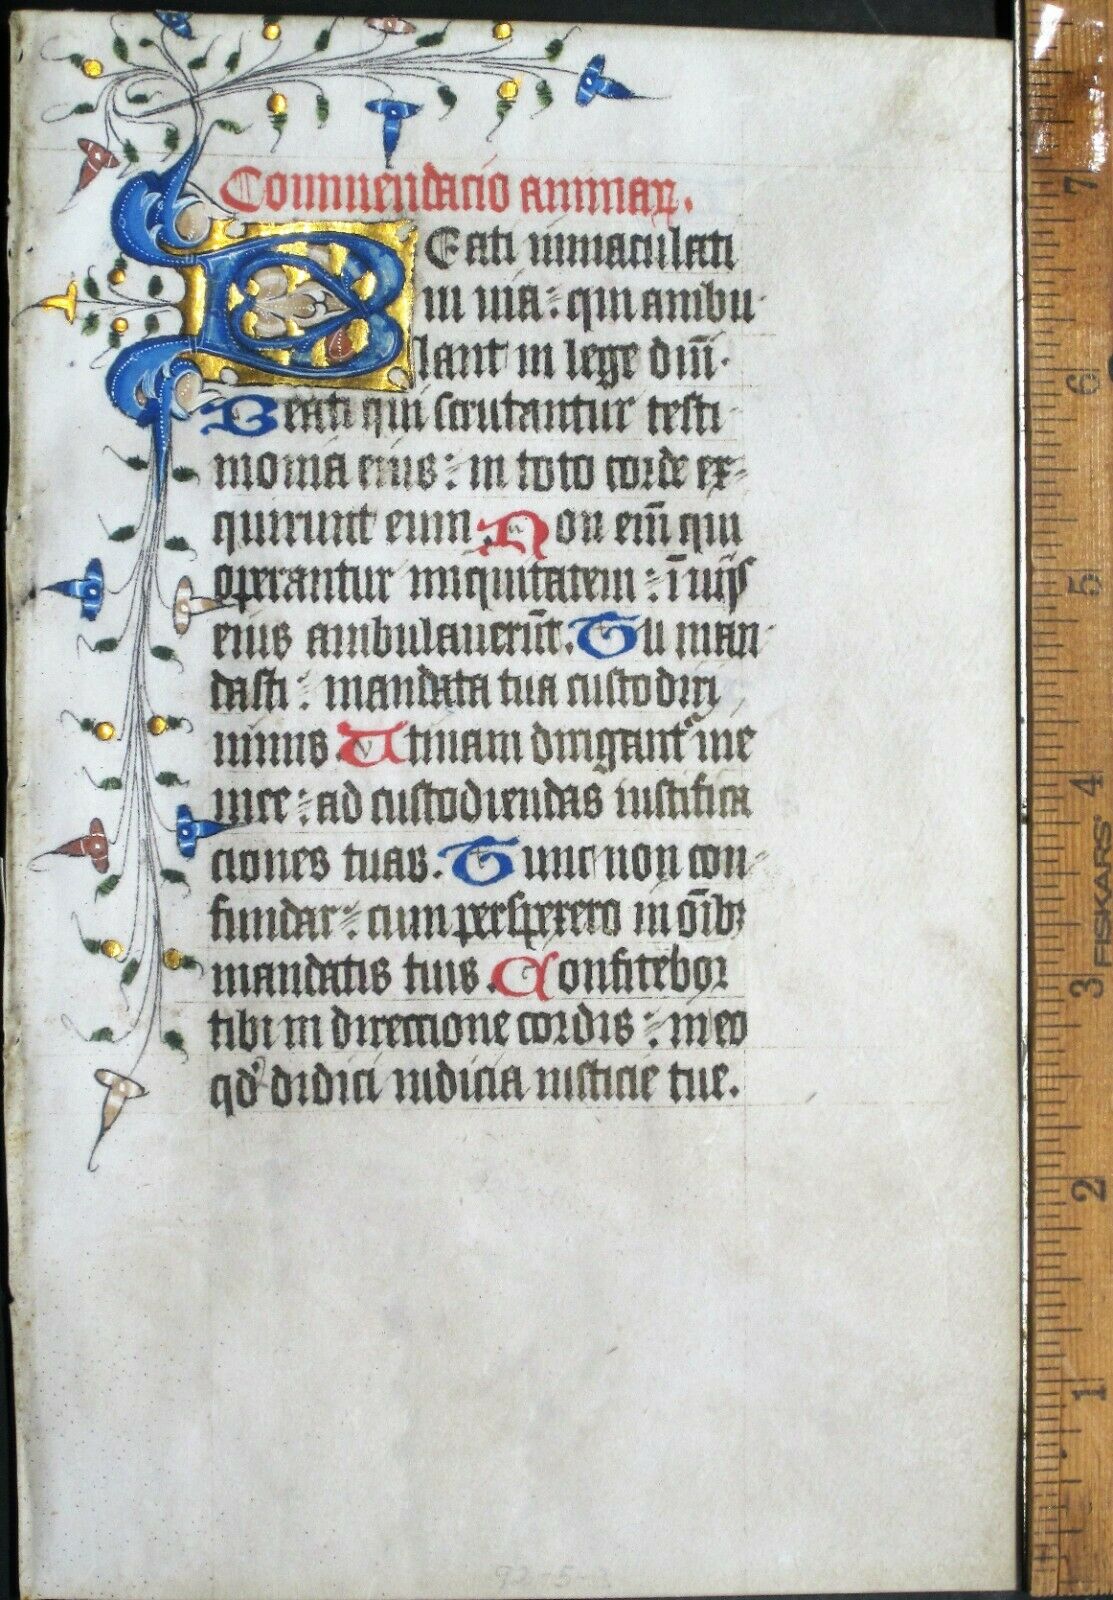 Commendacio animaꝝ.
Beati immaculati
in uia: qui ambu
lant in lege dn̄i.
Beati qui scrutantur testi
monia eius: in toto corde ex
quirunt eum. Non em̄ qui
operantur iniquitatem: ī uijs
eius ambulauerūt. Tu man
dasti: mandata tua custodiri
nimis. Vtinam dirigantᷣ uie
mee: ad custodiendas iustifica
ciones tuas. Tunc non con
fundar: cum perspexero in oībꝫ
mandatis tuis. Confitebor
tibi in direccione cordis: in eo
qd̓ didici iudicia iusticie tue.
92-5-
7
6
5
4
3
2
1
FISKARS